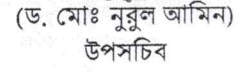 (ড. মোঃ নুরুল আমিন)
উপসচিব